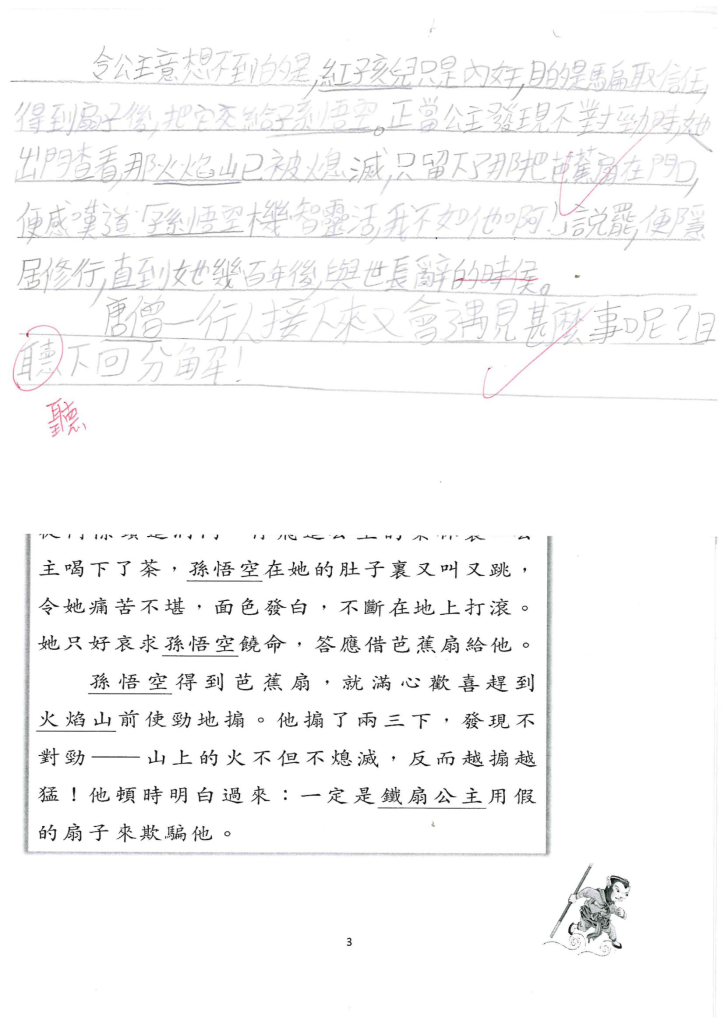 令公主意想不到的是,紅孩兒只是內奸,目的是騙取信任,
得到扇子後,把它交給孫悟空。正當公主發現不對勁時,她
出門查看,那火焰山已被熄滅,只留下了那把芭蕉扇在門口,
便感嘆道:「孫悟空機智靈活,我不如他啊!」說罷,便隱
居修行,直到她幾百年後,與世長辭的時侯。
唐僧一行人接下來又會遇見甚麼事呢?且
聽下回分解!
聽
主喝下了茶,孫悟空在她的肚子裏又叫又跳,
令她痛苦不堪,面色發白,不斷在地上打滾。
她只好哀求孫悟空饒命,答應借芭蕉扇給他。
孫悟空得到芭蕉扇,就滿心歡喜趕到
火焰山前使勁地搧。他搧了兩三下,發現不
對勁——山上的火不但不熄滅,反而越搧越
猛!他頓時明白過來:一定是鐵扇公主用假
的扇子來欺騙他。
3